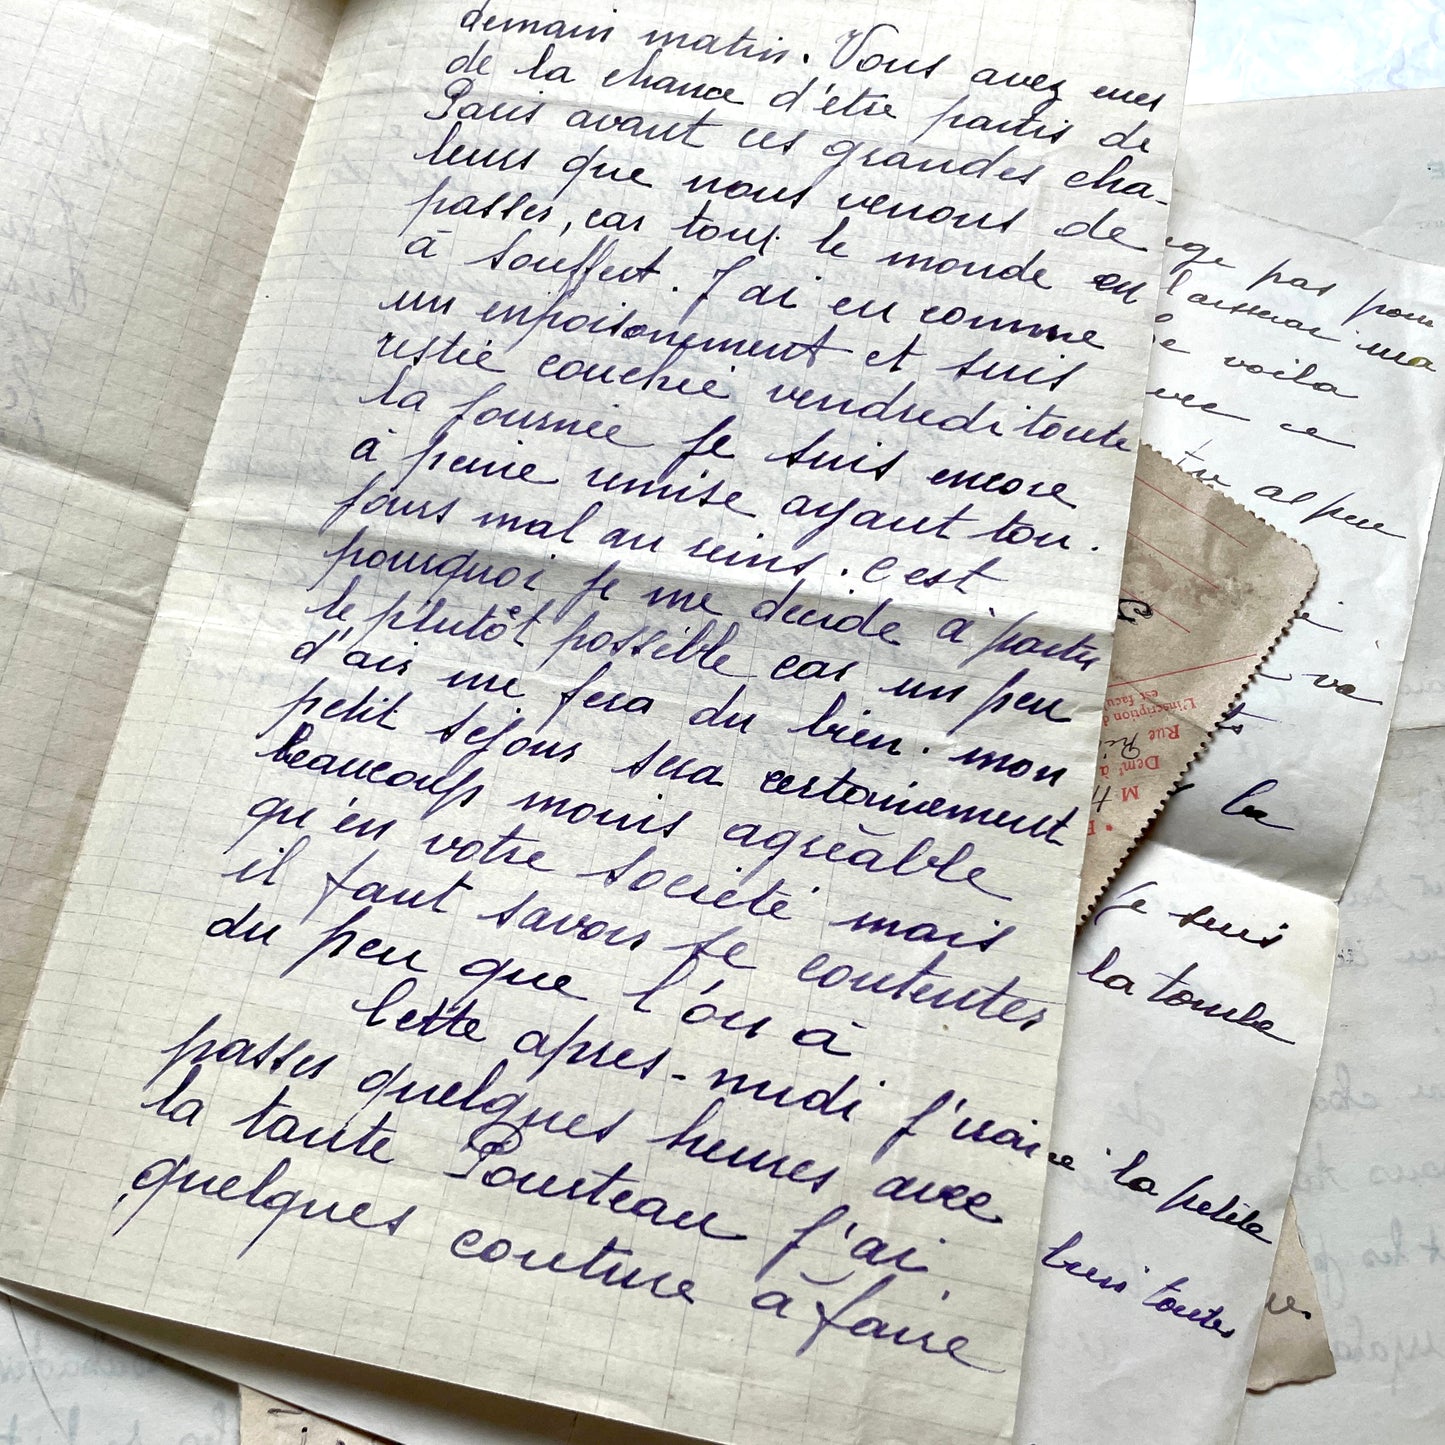 demain matin. Vous avez eues
de la chance d'être partis de
Paris avant ces grandes cha-
leurs que nous venons de
passer, car tous le monde en
à souffert. J'ai eu comme
un enpoisonement et suis
restée couchée vendredi toute
la journée je suis encore
à peine remise ayant tou-
jours mal au reins. C'est
pourquoi je me decide à partir
le plutôt possible car un peu
d'air me fera du bien. mon
petit séjour sera certainement
beaucoup moins agréable
qu'en votre société mais
il faut savoir se contenter
du peu que l'on à
Cette apres-midi j'irai
passer quelques heures avec
la tante Pousteau j'ai
quelques couture à faire
pas pour
laisserai ma
voila
ce
tu as peu
va
la
Je suis
la tombe
la petite
toutes
L'inscription d
est facu
Rue
Dem.t à
M